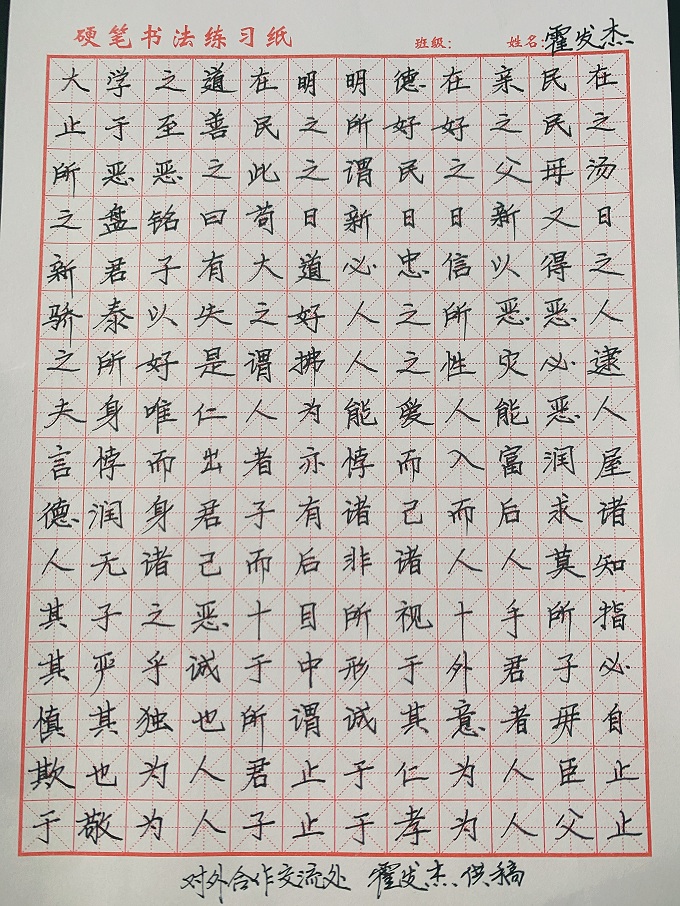 硬笔书法练习纸 班级: 姓名: 霍发杰
大学之道在明明德在亲民在
止于至善民之所好好之民之
所恶恶之此之谓民之父母汤
之盘铭曰苟日新日日新又日
新君子有大道必忠信以得之
骄泰以失之好人之所恶恶人
之所好是谓拂人之性灾必逮
夫身唯仁人为能爱人能恶人
言悖而出者亦悖而入富润屋
德润身君子有诸己而后求诸
人无诸己而后非诸人人莫知
其子之恶十目所视十手所指
其严乎诚于中形于外君子必
慎其独也所谓诚其意者毋自
欺也为人君止于仁为人臣止
于敬为人子止于孝为人父止
对外合作交流处 霍发杰供稿